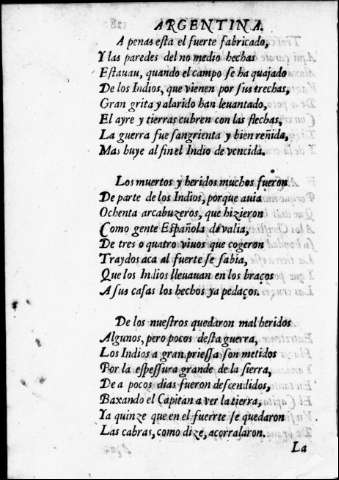 ARGENTINA.
A penas esta el fuerte fabricado,
Y las paredes del no medio hechas
Estauau, quando el campo se ha quajado
De los Indios, que vienen por sus trechas,
Gran grita y alarido han leuantado,
El ayre y tierras cubren con las flechas,
La guerra fue sangrienta y bien reñida,
Mas huye al fin el Indio de vencida.
Los muertos y heridos muchos fueron
De parte de los Indios, porque auia
Ochenta arcabuzeros, que hizieron
Como gente Española de valia,
De tres o quatro viuos que cogeron
Traydos aca al fuerte se sabia,
Que los Indios lleuauan en los braços
A sus casas los hechos ya pedaços.
De los nuestros quedaron mal heridos
Algunos, pero pocos desta guerra,
Los Indios a gran priessa son metidos
Por la espessura grande de la sierra,
De a pocos dias fueron descendidos,
Baxando el Capitan a ver la tierra,
Ya quinze que en el fuerrte se quedaron
Las cabras, como dize, acorralaron.
La